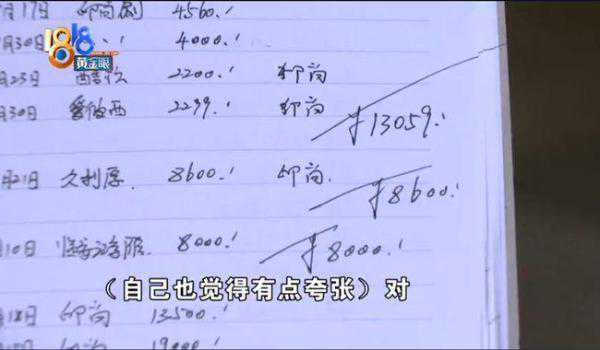 月17日 印尚刷 4560.
月30日 4000.
1818黄金眼
月23日 西吉拉 2200. 印尚
月30日 爱伽西 2299. 印尚 ¥13059.
月21日 久利厚. 8600. 印尚. ¥8600.
月10日 8000. ¥8000.
(自己也觉得有点夸张)对
月18日 印尚 13500.
印尚 19000.